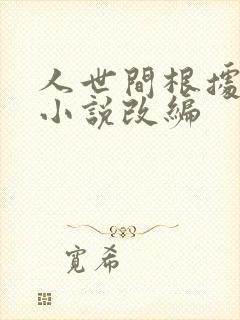 人世間根據
小說改編
寬希